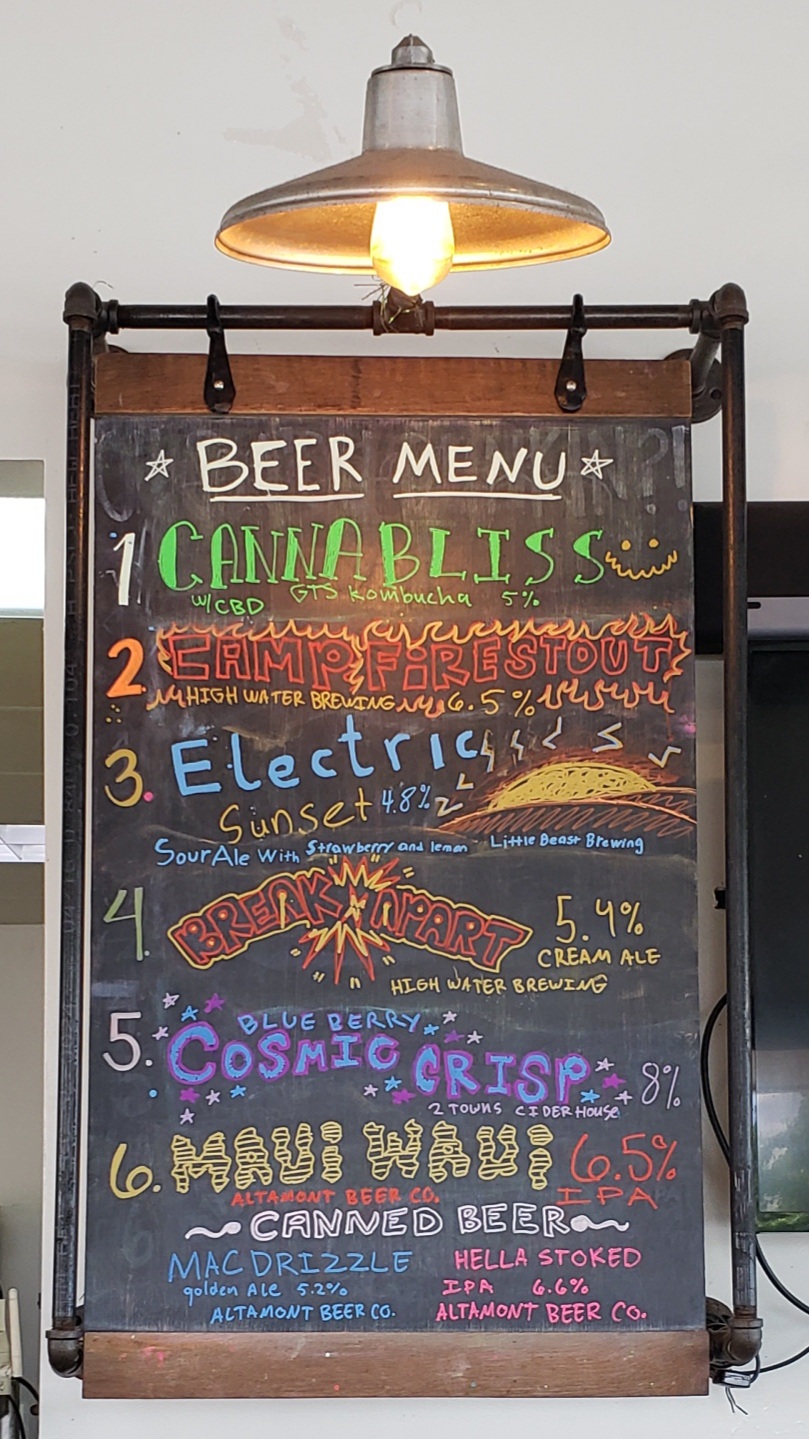 ☆ BEER MENU ☆
1 CANNABLISS
w/CBD GTS Kombucha 5%
2. CAMPFIRE STOUT
HIGH WATER BREWING 6.5%
3. Electric
Sunset 4.8%
Sour Ale With Strawberry and lemon Little Beast Brewing
4. BREAK APART 5.4%
CREAM ALE
HIGH WATER BREWING
5. BLUE BERRY
COSMIC CRISP 8%
2 TOWNS CIDERHOUSE
6. MAUI WAUI 6.5%
ALTAMONT BEER CO. IPA
~CANNED BEER~
MAC DRIZZLE HELLA STOKED
golden Ale 5.2% IPA 6.6%
ALTAMONT BEER CO. ALTAMONT BEER CO.